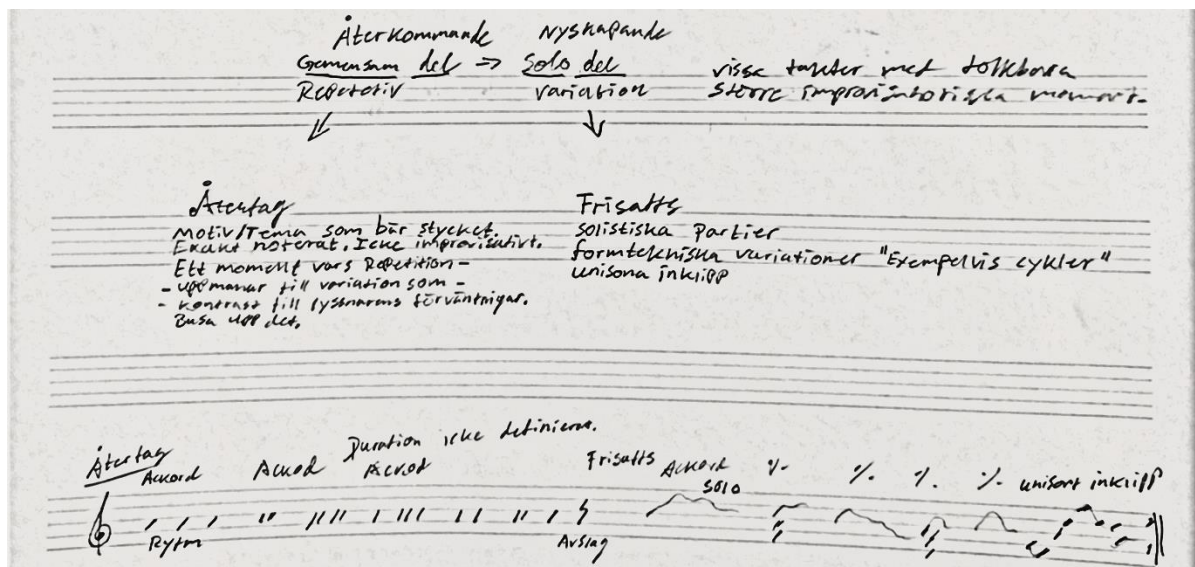 Återkommande Nyskapande
Gemensam del => Solo del
Repetativ variation
vissa takter med tolkbara
större improvisatoriska moment.
Återtag
Motiv/Tema som bär stycket.
Exakt noterat. Icke improvisativt.
Ett moment vars Repetition -
- uppmanar till variation som -
- kontrast till lyssnarens förväntnigar.
Busa upp det.
Frisatts
solistiska partier
formtekniska variationer "Exempelvis cykler"
unisona inklipp
Återtag
Ackord Ackod Duration icke definierat.
Ackod
Frisatts Ackord
solo
٪ ٪ ٪ ٪ unisont inklipp
Rytm Avslag